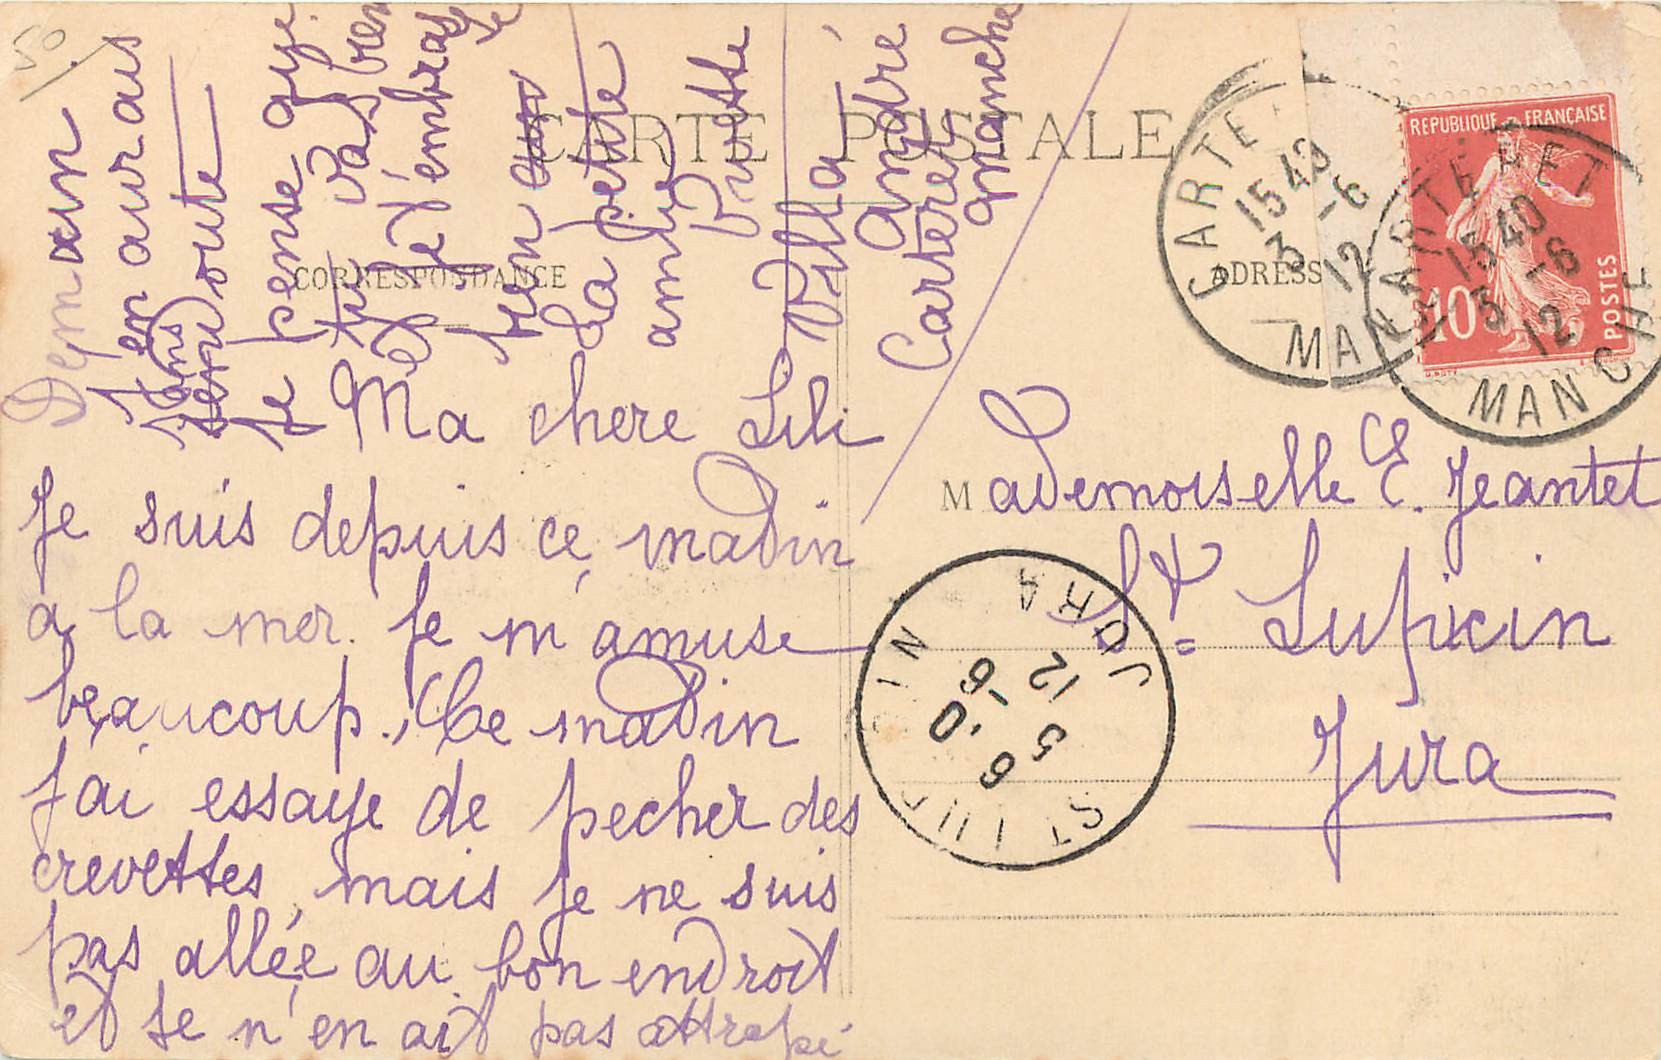 CARTE POSTALE
CORRESPONDANCE
ADRESSE
Ma chere Lili
Je suis depuis ce matin
a la mer. Je m'amuse
beaucoup. Ce matin
j'ai essaye de pecher des
crevettes, mais je ne suis
pas allée au bon endroit
et je n'en ait pas attrapé
Demain
j'en aurais
sans
doute
Je pense que
tu vas bien
et je t'embrasse
bien
La petite
amie
Pierette
Villa
André
Carteret
manche
Mademoiselle E. Jeantet
St Lupicin
Jura
REPUBLIQUE FRANÇAISE
10
POSTES
CARTERET
15 40
3 -6
12
MANCHE
CARTERET
15 40
3 -6
12
MANCHE
ST LUPICIN
6
5 -6
12
JURA
50